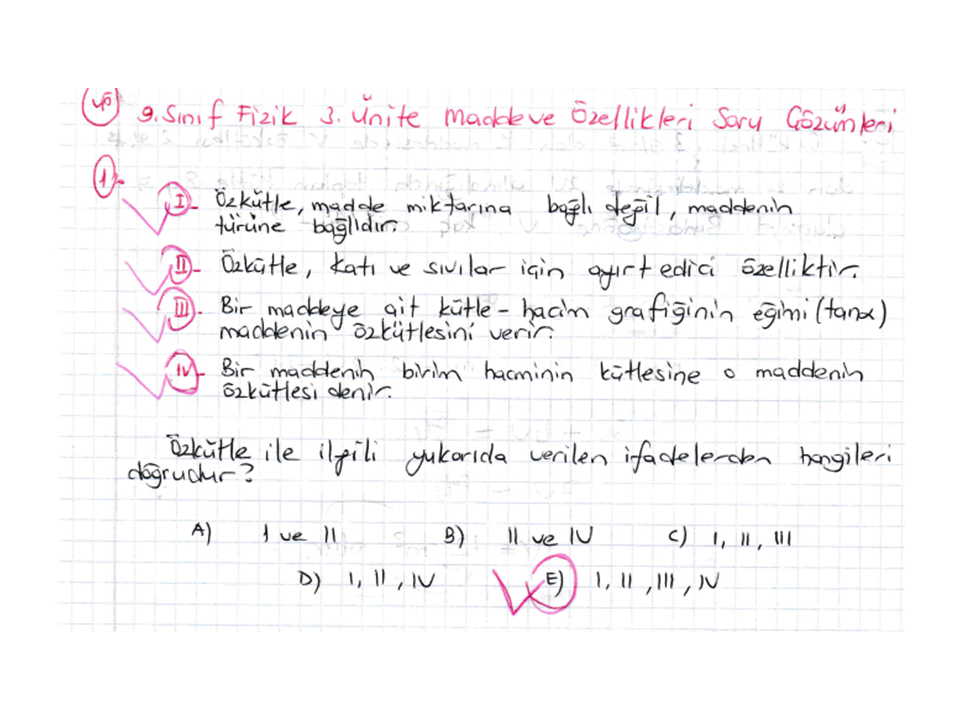 9. Sınıf Fizik 3. Ünite Madde ve Özellikleri Soru Çözümleri
1-
I- Özkütle, madde miktarına bağlı değil, maddenin
türüne bağlıdır.
II- Özkütle, katı ve sıvılar için ayırt edici özelliktir.
III- Bir maddeye ait kütle - hacim grafiğinin eğimi (tanα)
maddenin özkütlesini verir.
IV- Bir maddenin birim hacminin kütlesine o maddenin
özkütlesi denir.
Özkütle ile ilgili yukarıda verilen ifadelerden hangileri
doğrudur?
A) I ve II B) II ve IV C) I, II, III
D) I, II, IV E) I, II, III, IV